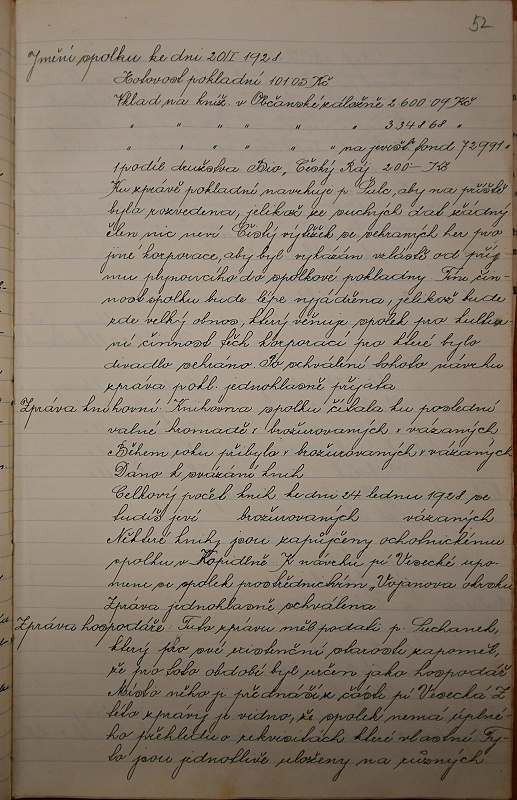 52
Jmění spolku ke dni 20/I 1928.
Hotovost pokladní 101 05 Kč
Vklad na kníž. v Občanské záložně 2 600 09 Kč
" " " " " " 3.348 68 "
" " " " " " na jevišt. fond 729 91 "
1 podíl družstva Bio „Český Ráj 200 – Kč
Ku zprávě pokladní, navrhuje p. Šulc, aby na příště
byla rozvedena, jelikož ze suchých dat žádný
člen nic neví. Čistý výtěžek ze sehraných her pro
jiné korporace, aby byl vykázán zvláště od příj
mu plynoucího do spolkové pokladny. Tím čin-
nost spolku bude lépe vyjádřena, jelikož bude
zde velký obnos, který věnuje spolek pro kultur
ní činnost těch korporací pro které bylo
divadlo sehráno. Po schválení tohoto návrhu
zpráva pokl. jednohlasně přijata
Zpráva knihovní: Knihovna spolku čítala ku poslední
valné hromadě: brožurovaných v vázaných
Během roku přibylo v brožurovaných v vázaných
Dáno k svázání knih
Celkový počet knih ke dni 24 lednu 1928 se
tudíž jeví brožurovaných vázaných
Některé knihy jsou zapůjčeny ochotnickému
spolku v Kopidlně. K návrhu pí Vesecké upo-
mene se spolek prostřednictvím „Vojanova okrsku
Zpráva jednohlasně schválena
Zpráva hospodáře: Tuto zprávu měl podati p. Suchanek,
který pro své existenční starosti zapoměl,
že pro toto období byl určen jako hospodář
Místo něho ji přednáší z části pí Vesecká. Z
této zprávy je vidno, že spolek nemá úplné-
ho přehledu o rekvisitách které vlastní. Ty-
to jsou jednotlivě uloženy na různých